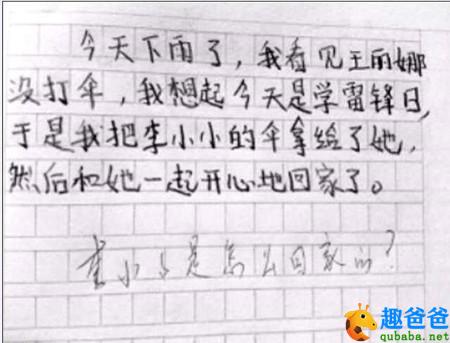 今天下雨了，我看见王丽娜
没打伞，我想起今天是学雷锋日，
于是我把李小小的伞拿给了她，
然后和她一起开心地回家了。
李小小是怎么回家的？
趣爸爸
qubaba.net